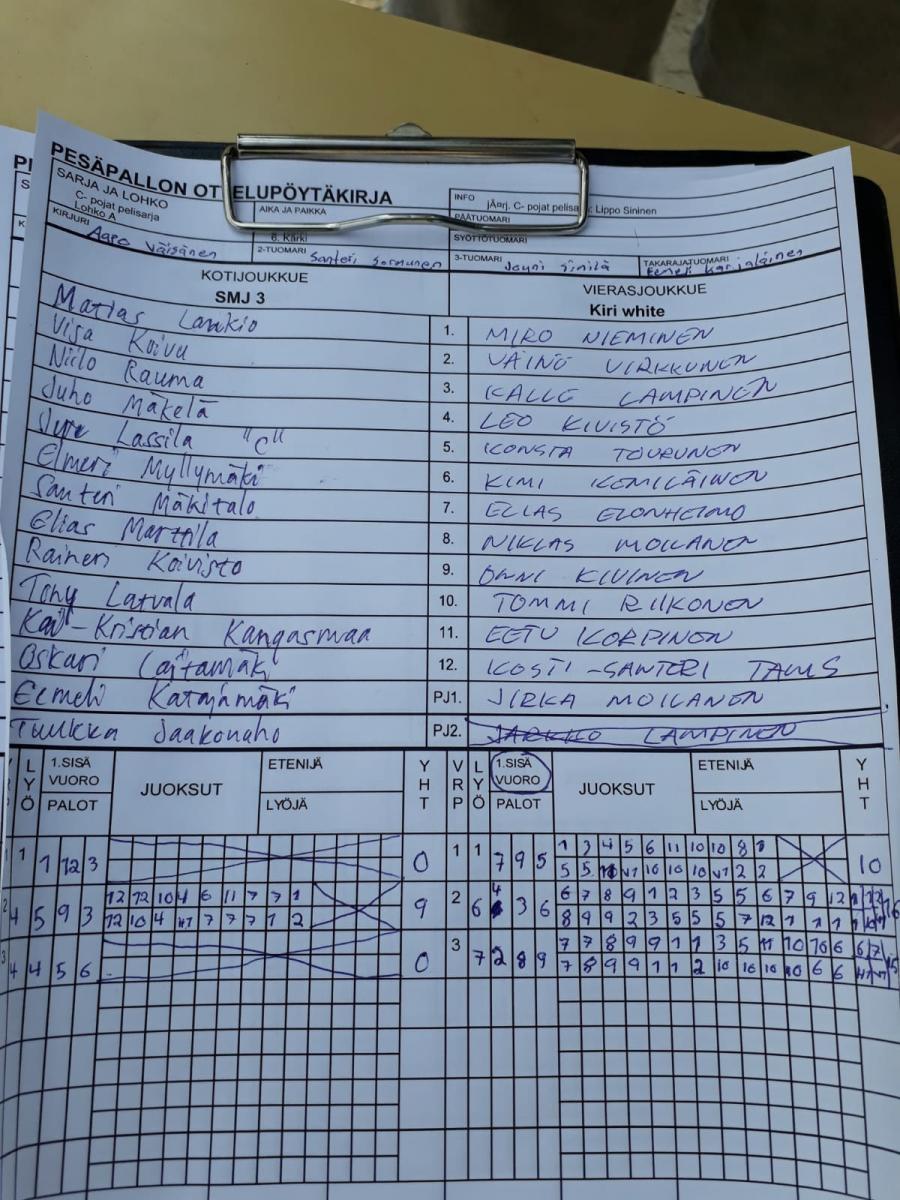 PESÄPALLON OTTELUPÖYTÄKIRJA
SARJA JA LOHKO
C- pojat pelisarja
Lohko A
AIKA JA PAIKKA
6. Kärki
INFO
jÃ¤rj. C- pojat pelisa : Lippo Sininen
PÄÄTUOMARI
SYÖTTÖTUOMARI
KIRJURI
Aaro Väisänen
2-TUOMARI
Santeri Sormunen
3-TUOMARI
Jouni Sinilä
TAKARAJATUOMARI
Eemeli Karjalainen
KOTIJOUKKUE
SMJ 3
VIERASJOUKKUE
Kiri white
Matias Lankio 1. MIRO NIEMINEN
Visa Koivu 2. VÄINÖ VIRKKUNEN
Niilo Rauma 3. KALLE LAMPINEN
Juho Mäkelä 4. LEO KIVISTÖ
Lassila "C" 5. KONSTA TOURUNEN
Elmeri Myllymäki 6. KIMI KEMILÄINEN
Santeri Mäkitalo 7. ELIAS ELONHEIMO
Elias Marttila 8. NIKLAS MOILANEN
Raineri Koivisto 9. ONNI KIVINEN
Tony Latvala 10. TOMMI RIIKONEN
Kai-Kristian Kangasmaa 11. EETU KORPINEN
Oskari Laitamäki 12. KOSTI-SANTERI TAMS
Eemeli Katajamäki PJ1. JIRKA MOILANEN
Tuukka Jaakonaho PJ2. JARKKO LAMPINEN
LYÖ 1.SISÄ VUORO PALOT JUOKSUT ETENIJÄ LYÖJÄ YHT VRP LYÖ 1.SISÄ VUORO PALOT JUOKSUT ETENIJÄ LYÖJÄ YHT
1 1 1 12 3 0 1 1 7 9 5 1 3 4 5 6 11 10 10 8 1 10
5 5 10 10 10 2 2
2 4 5 9 3 12 12 10 4 6 11 7 7 1 9 2 6 4 3 6 6 7 8 9 1 2 3 5 5 6 7 9 12 1 12 16
12 10 4 7 7 7 1 2 8 9 9 2 3 5 5 5 7 12 1 1 1
3 4 4 5 6 0 3 7 2 8 9 7 7 8 9 9 1 1 3 5 11 10 10 6 6 7 15
7 8 9 9 1 1 2 10 10 10 10 6 6